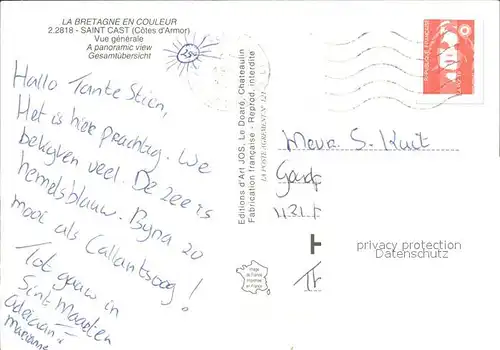 LA BRETAGNE EN COULEUR
2.2818 - SAINT CAST (Côtes d'Armor)
Vue générale
A panoramic view
Gesamtübersicht
25°
Hallo Tante Stien,
Het is hier prachtig. We
bekyven veel. De zee is
hemelsblauw. Byna zo
mooi als Callantsoog!
Tot gauw in
Sint Maarten
Adriaan
Marianne
Editions d'Art JOS, Le Doaré, Chateaulin
Fabrication française - Reprod. interdite
LA POSTE AGREMENT N° 121
RÉPUBLIQUE FRANÇAISE
LA POSTE
Mevr. S.
privacy protection
Datenschutz